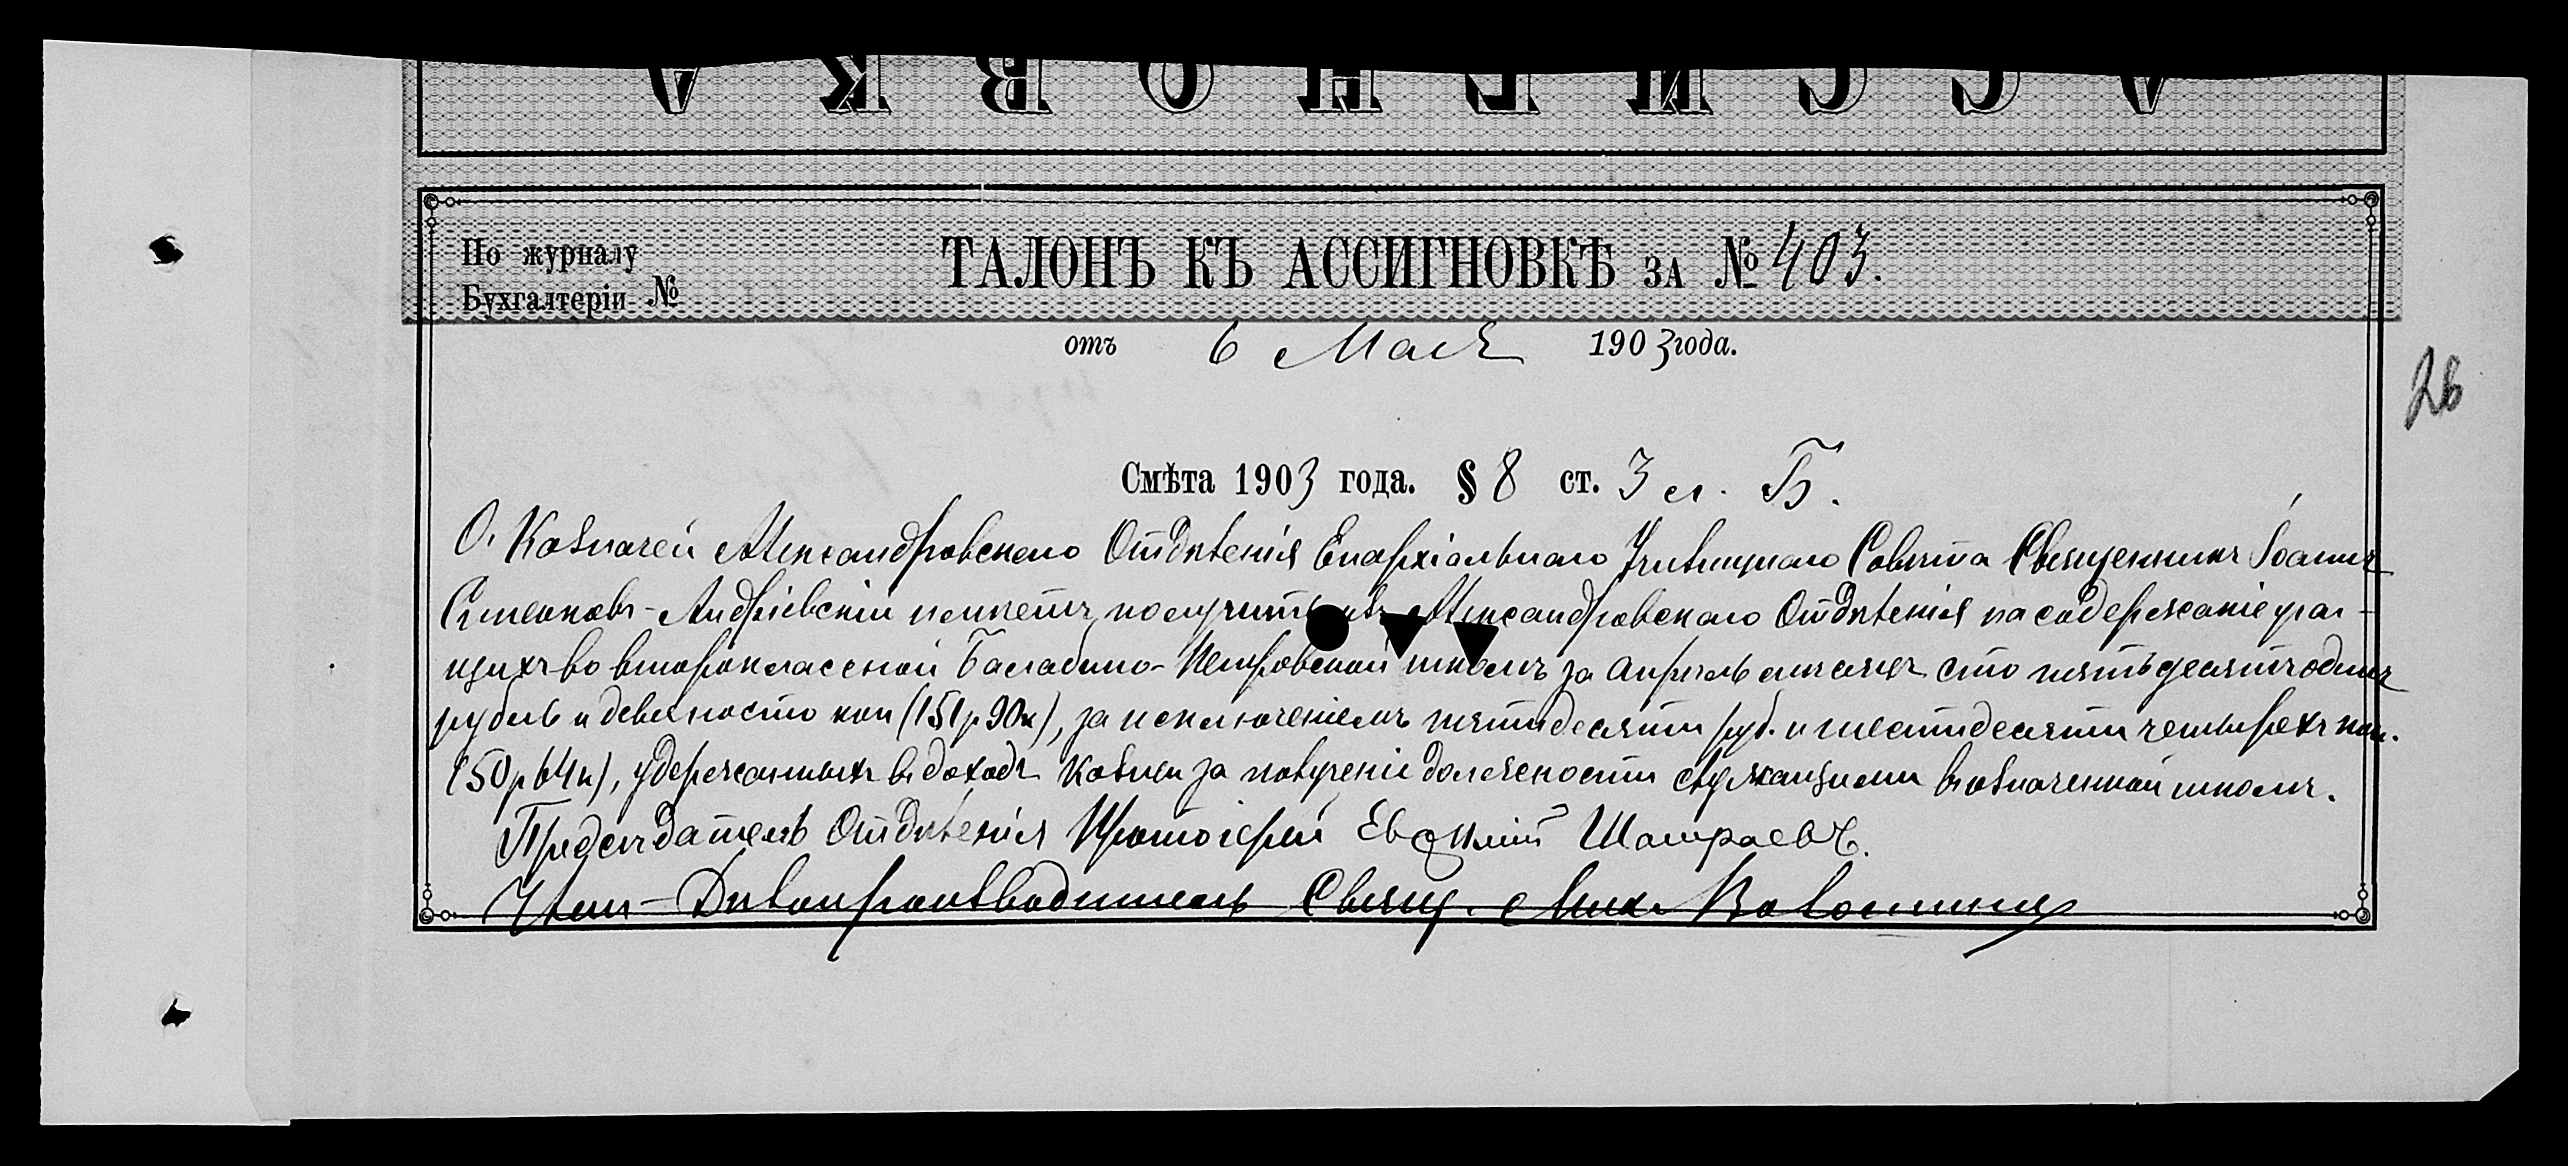 АССИГНОВКА
По журналу
Бухгалтеріи №
ТАЛОНЪ КЪ АССИГНОВКѢ ЗА № 403.
отъ 6 Мая 1903 года.
26
Смѣта 1903 года. § 8 ст. 3 л. Б.
О. Казначей Александровскаго Отдѣленія Епархіальнаго Училищнаго Совѣта Священникъ Іоаннъ
Андріевскій имѣетъ получить изъ Александровскаго Отдѣленія на содержаніе уча-
щихъ во второклассной Балабино-Петровской школѣ за Апрѣль мѣсяцъ сто пятьдесятъ одинъ
рубль и девяносто коп (151 р 90к), за исключеніемъ пятидесяти руб. и шестидесяти четырехъ коп.
(50 р 64к), удержанныхъ въ доходъ казны за полученіе должности служащими въ означенной школѣ.
Предсѣдатель Отдѣленія Протоіерей Евѳимій
Членъ-Дѣлопроизводитель Свящ. Мих. Волошинъ